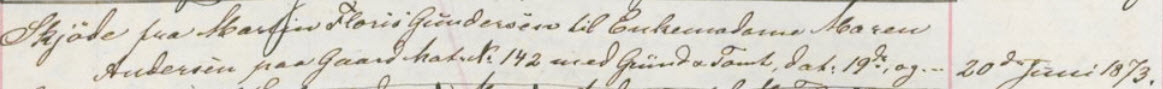 Skjöde fra Martin Floris Gundersen til Enkemadame Maren
Andersen paa Gaard Mat. No. 142 med Grund & Tomt, dat. 19de, og .. 20de Juni 1873.